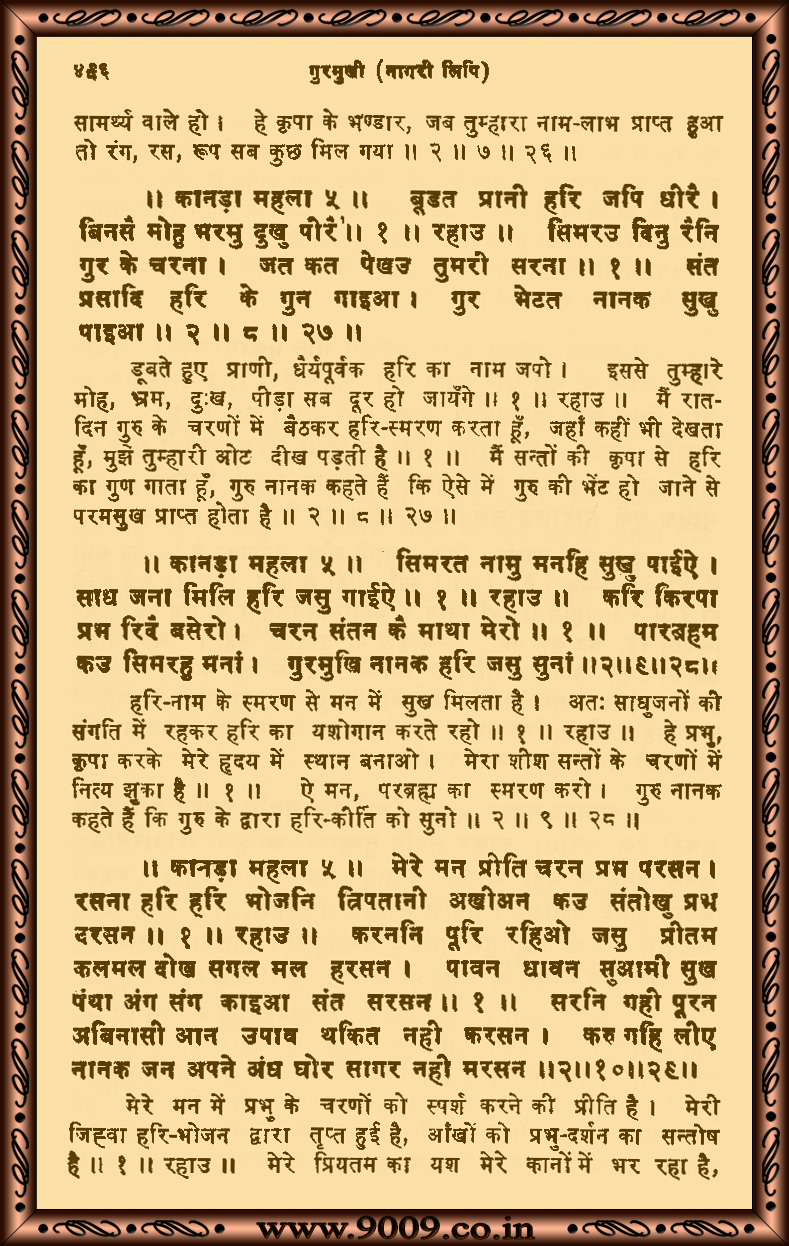 ४५६ गुरमुखी (नागरी लिपि)
सामर्थ्य वाले हो। हे कृपा के भण्डार, जब तुम्हारा नाम-लाभ प्राप्त हुआ
तो रंग, रस, रूप सब कुछ मिल गया ॥ २ ॥ ७ ॥ २६ ॥
॥ कानड़ा महला ५ ॥ बूडत प्रानी हरि जपि धीरै ।
बिनसै मोहु भरमु दुखु पीरै ॥ १ ॥ रहाउ ॥ सिमरउ दिनु रैनि
गुर के चरना । जत कत पेखउ तुमरी सरना ॥ १ ॥ संत
प्रसादि हरि के गुन गाइआ । गुर भेटत नानक सुखु
पाइआ ॥ २ ॥ ८ ॥ २७ ॥
डूबते हुए प्राणी, धैर्यपूर्वक हरि का नाम जपो । इससे तुम्हारे
मोह, भ्रम, दुःख, पीड़ा सब दूर हो जायँगे ॥ १ ॥ रहाउ ॥ मैं रात-
दिन गुरु के चरणों में बैठकर हरि-स्मरण करता हूँ, जहाँ कहीं भी देखता
हूँ, मुझे तुम्हारी ओट दीख पड़ती है ॥ १ ॥ मैं सन्तों की कृपा से हरि
का गुण गाता हूँ, गुरु नानक कहते हैं कि ऐसे में गुरु की भेंट हो जाने से
परमसुख प्राप्त होता है ॥ २ ॥ ८ ॥ २७ ॥
॥ कानड़ा महला ५ ॥ सिमरत नामु मनहि सुखु पाईऐ ।
साध जना मिलि हरि जसु गाईऐ ॥ १ ॥ रहाउ ॥ करि किरपा
प्रभ रिदै बसेरो । चरन संतन कै माथा मेरो ॥ १ ॥ पारब्रहम
कउ सिमरहु मनां । गुरमुखि नानक हरि जसु सुनां ॥२॥९॥२८॥
हरि-नाम के स्मरण से मन में सुख मिलता है । अतः साधुजनों की
संगति में रहकर हरि का यशोगान करते रहो ॥ १ ॥ रहाउ ॥ हे प्रभु,
कृपा करके मेरे हृदय में स्थान बनाओ । मेरा शीश सन्तों के चरणों में
नित्य झुका है ॥ १ ॥ ऐ मन, परब्रह्म का स्मरण करो । गुरु नानक
कहते हैं कि गुरु के द्वारा हरि-कीर्ति को सुनो ॥ २ ॥ ९ ॥ २८ ॥
॥ कानड़ा महला ५ ॥ मेरे मन प्रीति चरन प्रभ परसन ।
रसना हरि हरि भोजनि त्रिपतानी अखीअन कउ संतोखु प्रभ
दरसन ॥ १ ॥ रहाउ ॥ करननि पूरि रहिओ जसु प्रीतम
कलमल दोख सगल मल हरसन । पावन धावन सुआमी सुख
पंथा अंग संग काइआ संत सरसन ॥ १ ॥ सरनि गही पूरन
अबिनासी आन उपाव थकित नही करसन । करु गहि लीए
नानक जन अपने अंध घोर सागर नही मरसन ॥२॥१०॥२९॥
मेरे मन में प्रभु के चरणों को स्पर्श करने की प्रीति है । मेरी
जिह्वा हरि-भोजन द्वारा तृप्त हुई है, आँखों को प्रभु-दर्शन का सन्तोष
है ॥ १ ॥ रहाउ ॥ मेरे प्रियतम का यश मेरे कानों में भर रहा है,
www.9009.co.in